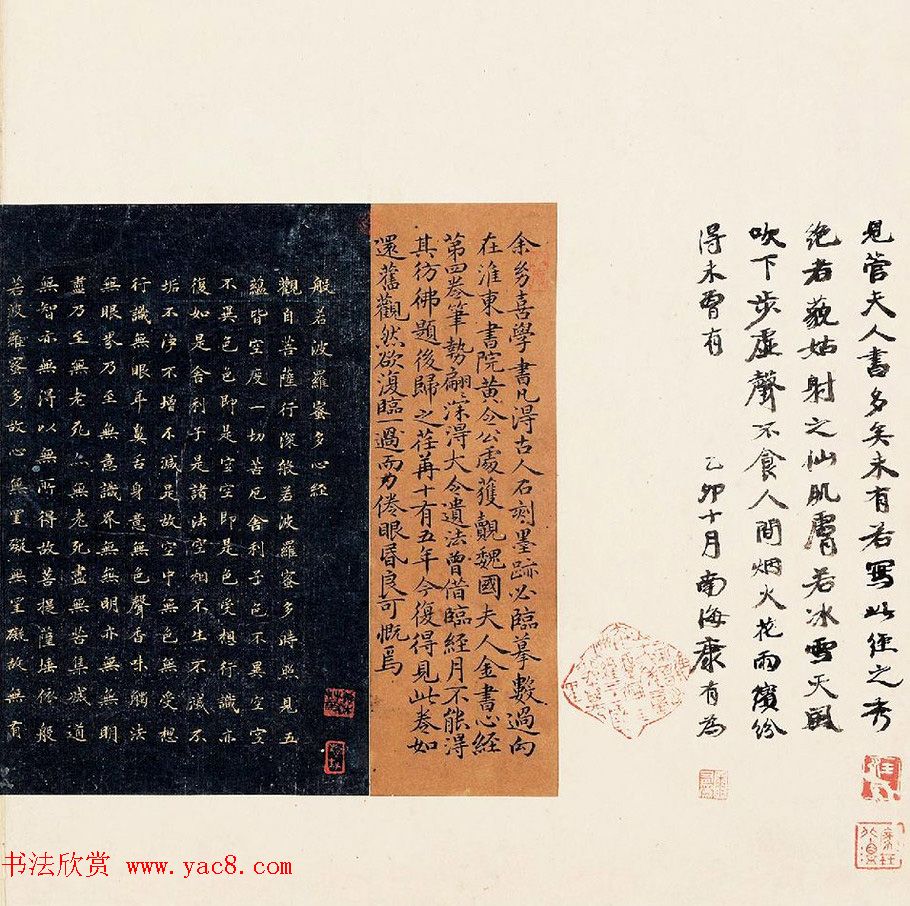 見管夫人書多矣未有若寫此經之秀
絶者藐姑射之仙肌膚若冰雪天風
吹下步虛聲不食人間烟火花雨繽紛
得未曾有
乙卯十月南海康有為
余多喜學書凡得古人石刻墨跡必臨摹數過向
在淮東書院黃令公處獲覩魏國夫人金書心經
第四卷筆勢翩翩深得大令遺法曾借臨經月不能得
其彷彿題後歸之荏苒十有五年今復得見此卷如
還舊觀然欲復臨一過而力倦眼昏良可慨焉
般若波羅蜜多心經
觀自菩薩行深般若波羅蜜多時照見五
蘊皆空度一切苦厄舍利子色不異空空
不異色色即是空空即是色受想行識亦
復如是舍利子是諸法空相不生不滅不
垢不淨不增不減是故空中無色無受想
行識無眼耳鼻舌身意無色聲香味觸法
無眼界乃至無意識界無無明亦無無明
盡乃至無老死亦無老死盡無苦集滅道
無智亦無得以無所得故菩提薩埵依般
若波羅蜜多故心無罣礙無罣礙故無有
书法欣赏 www.yac8.com